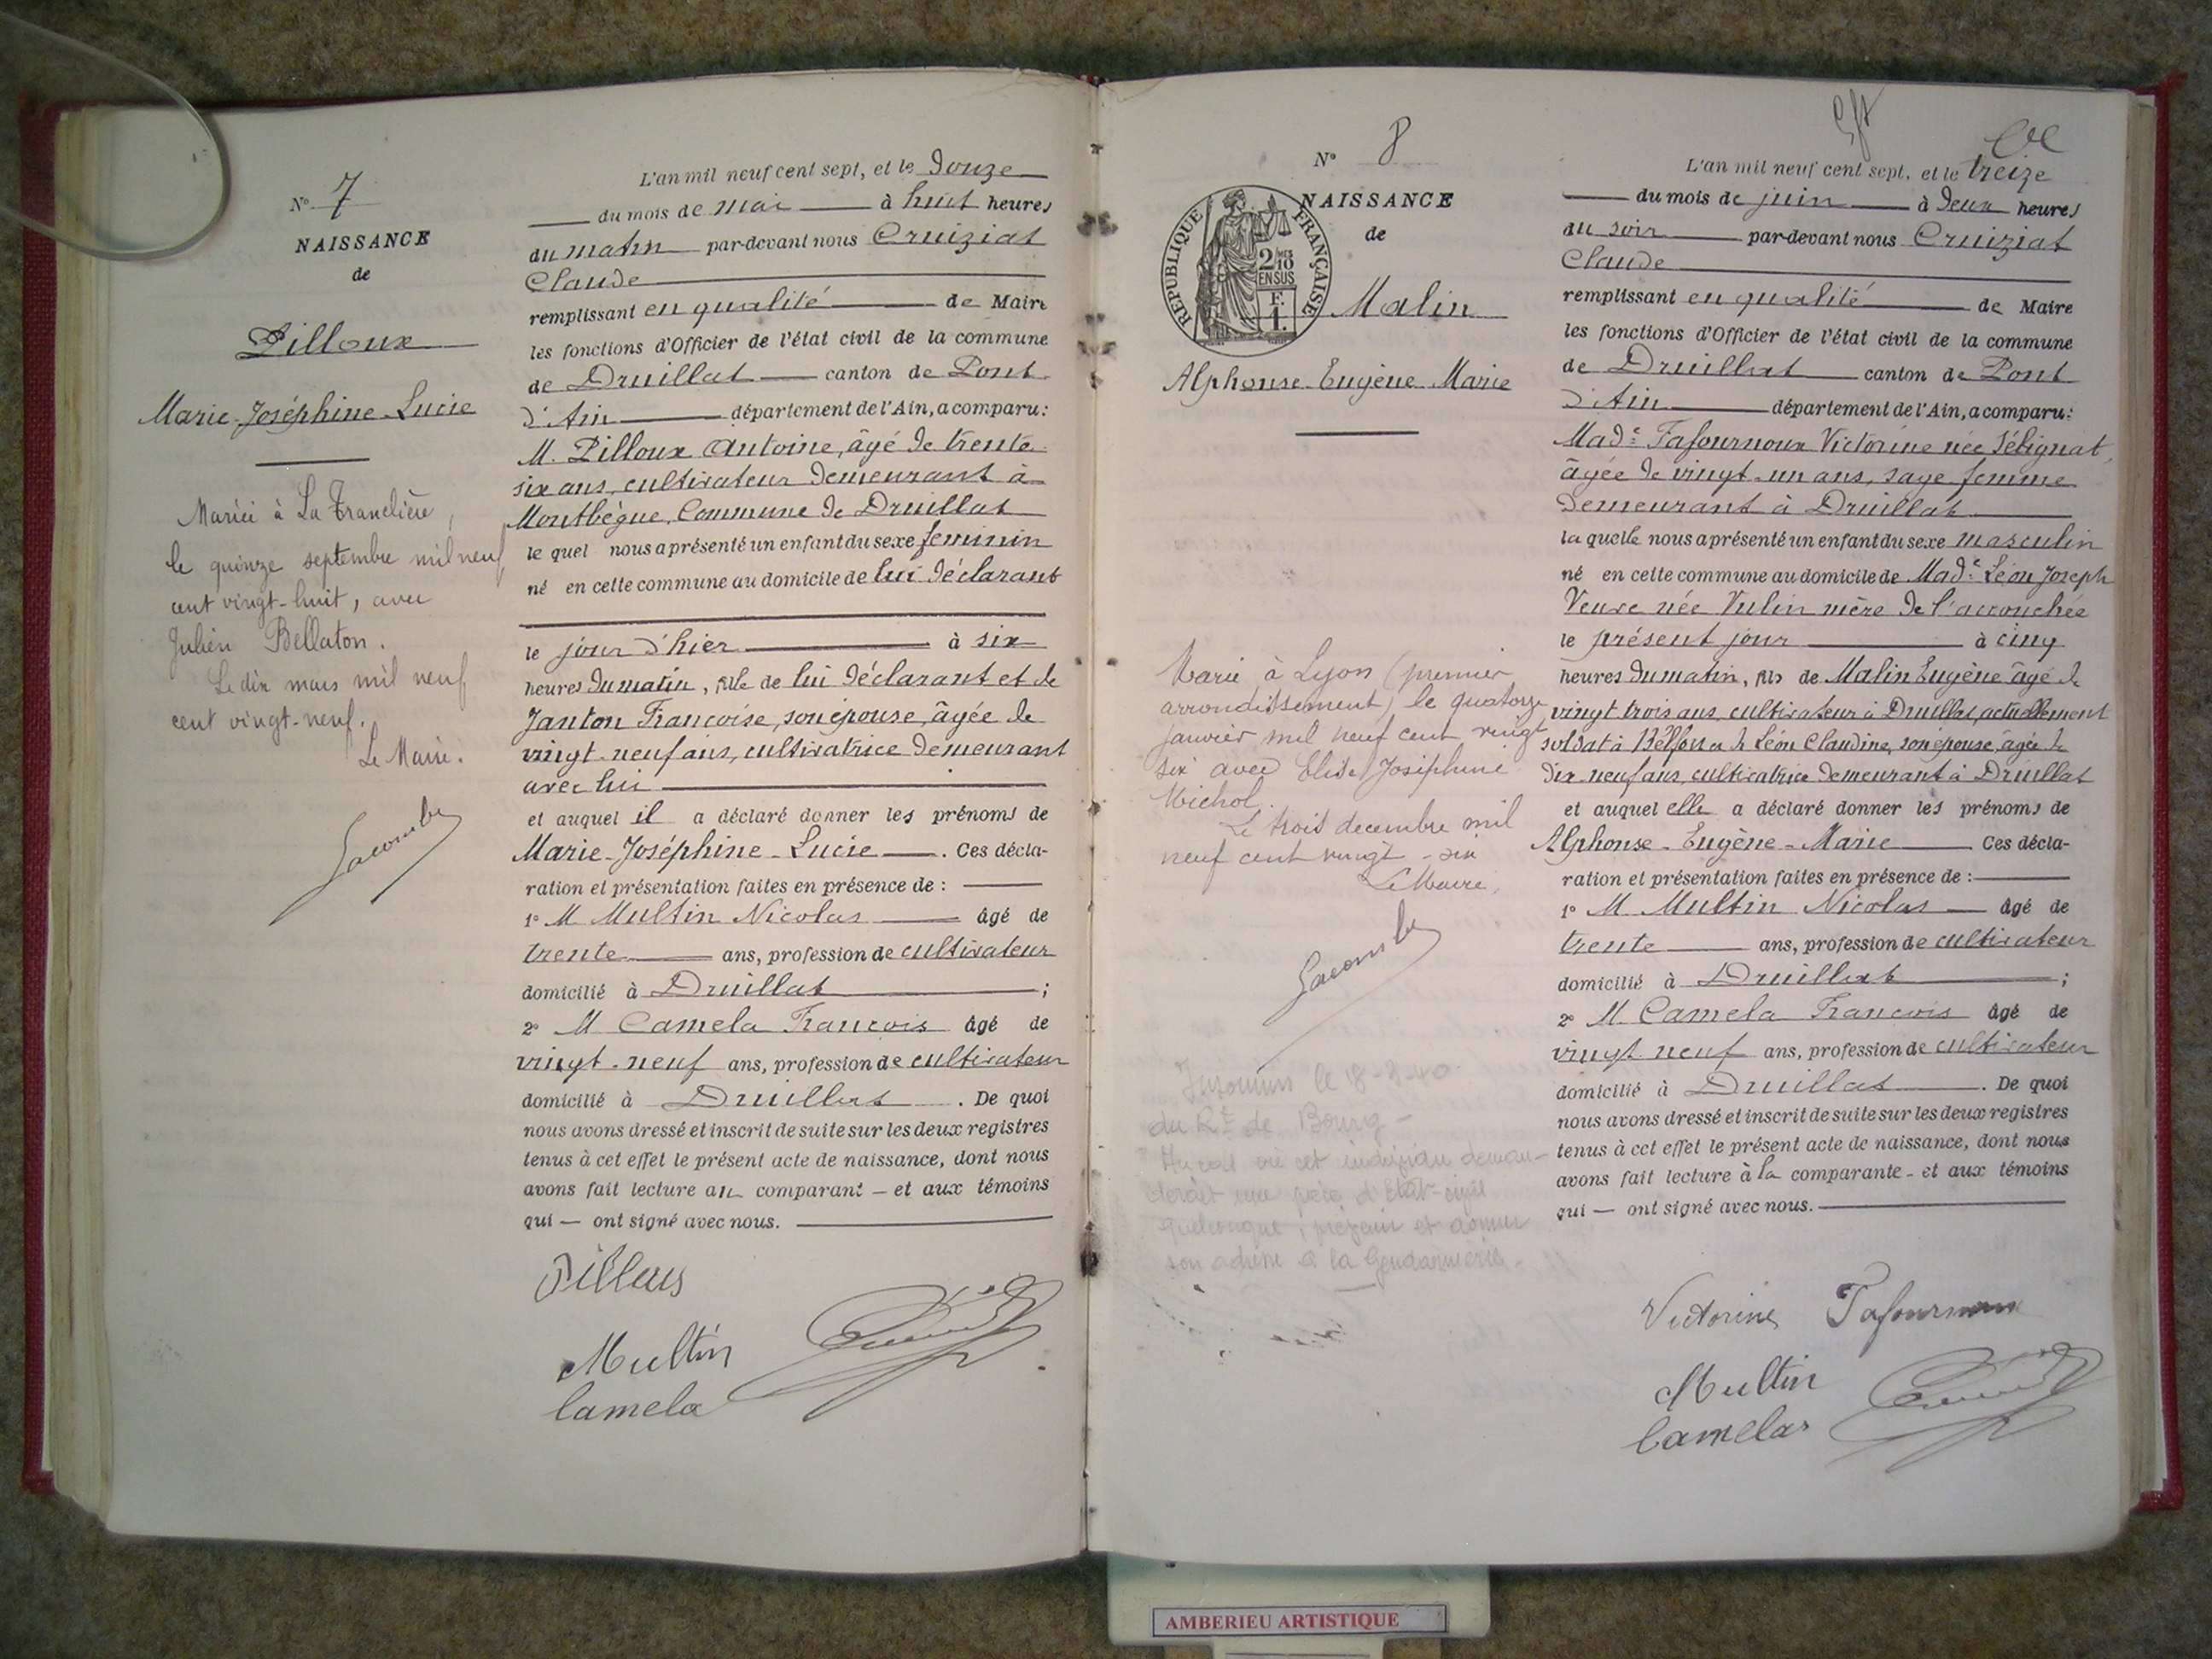 N° 7
NAISSANCE
de
Pilloux
Marie-Joséphine-Lucie
Mariée à La Tranclière,
le quinze septembre mil neuf
cent vingt-huit, avec
Julien Bellaton.
Le dix mars mil neuf
cent vingt-neuf.
Le Maire.
Lacombe
L'an mil neuf cent sept, et le Douze
du mois de mai à huit heures
du matin par-devant nous Cruiziat
Claude
remplissant en qualité de Maire
les fonctions d'Officier de l'état civil de la commune
de Druillat canton de Pont
d'Ain département de l'Ain, a comparu:
M. Pilloux Antoine, âgé de trente
six ans, cultivateur demeurant à
Montbègue, Commune de Druillat
le quel nous a présenté un enfant du sexe feminin
né en cette commune au domicile de lui déclarant
le jour d'hier à six
heures du matin, fille de lui déclarant et de
Janton Françoise, son épouse, âgée de
vingt-neuf ans, cultivatrice demeurant
avec lui
et auquel il a déclaré donner les prénoms de
Marie-Joséphine-Lucie. Ces décla-
ration et présentation faites en présence de :
1° M Multin Nicolas âgé de
trente ans, profession de cultivateur
domicilié à Druillat ;
2° M Camela Francois âgé de
vingt-neuf ans, profession de cultivateur
domicilié à Druillat. De quoi
nous avons dressé et inscrit de suite sur les deux registres
tenus à cet effet le présent acte de naissance, dont nous
avons fait lecture au comparant – et aux témoins
qui — ont signé avec nous.
Pilloux
Multin
Camela
N° 8
NAISSANCE
de
REPUBLIQUE FRANÇAISE
2/10 EN SUS
F. 1.
Malin
Alphonse-Eugène-Marie
Marié à Lyon (premier
arrondissement) le quatorze
janvier mil neuf cent vingt
six avec Elise Joséphine
Michol.
Le trois decembre mil
neuf cent vingt-six
Le Maire,
Lacombe
Insoumis le 18-9-40
du Rt de Bourg –
cet individu deman-
derait une pièce d'Etat-civil
quelconque, et donner
son adresse à la Gendarmerie.
L'an mil neuf cent sept, et le treize
du mois de juin à deux heures
du soir par-devant nous Cruiziat
Claude
remplissant en qualité de Maire
les fonctions d'Officier de l'état civil de la commune
de Druillat canton de Pont
d'Ain département de l'Ain, a comparu:
Made Fafournoux Victorine née Sébignat,
âgée de vingt-un ans, sage femme
demeurant à Druillat
la quelle nous a présenté un enfant du sexe masculin
né en cette commune au domicile de Made Léon Joseph
Veuve née Vulin mère de l'accouchée
le présent jour à cinq
heures du matin, fils de Malin Eugène âgé de
vingt trois ans, cultivateur à Druillat, actuellement
soldat à Belfort et de Léon Claudine, son épouse, âgée de
dix-neuf ans, cultivatrice demeurant à Druillat
et auquel elle a déclaré donner les prénoms de
Alphonse-Eugène-Marie Ces décla-
ration et présentation faites en présence de :
1° M Multin Nicolas âgé de
trente ans, profession de cultivateur
domicilié à Druillat ;
2° M. Camela Francois âgé de
vingt neuf ans, profession de cultivateur
domicilié à Druillat. De quoi
nous avons dressé et inscrit de suite sur les deux registres
tenus à cet effet le présent acte de naissance, dont nous
avons fait lecture à la comparante – et aux témoins
qui — ont signé avec nous.
Victorine Fafournoux
Multin
Camela
AMBERIEU ARTISTIQUE